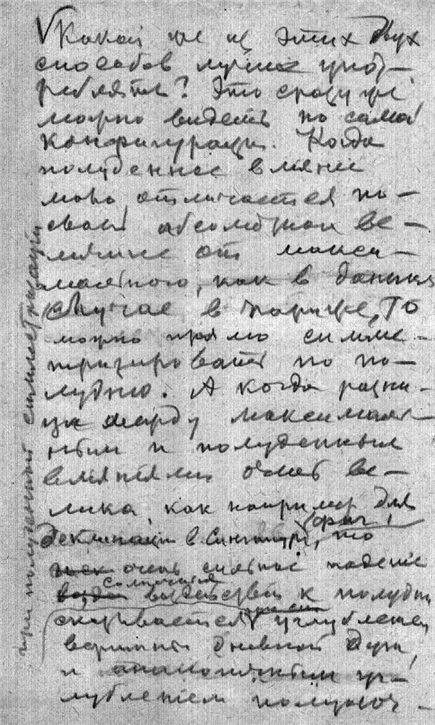 Какой же из этих двух
способов лучше упот-
реблять? Это сразу же
можно видеть по самой
конфигурации. Когда
полуденное влияние
мало отличается по
своей абсолютной ве-
личине от макси-
мального, как в данном
случае в Париже, то
можно прямо симме-
тризировать по по-
лудню. А когда разни-
ца между максималь-
ным и полуденным
влиянием очень ве-
лика, как например для
деклинации в Сингапуре,
то
очень сильное падение
солнечных
воздействий к полудню
сказывается углублением
вершины дневной дуги,
и аналогичным уг-
лублением полуноч-
при полуденной симметризации